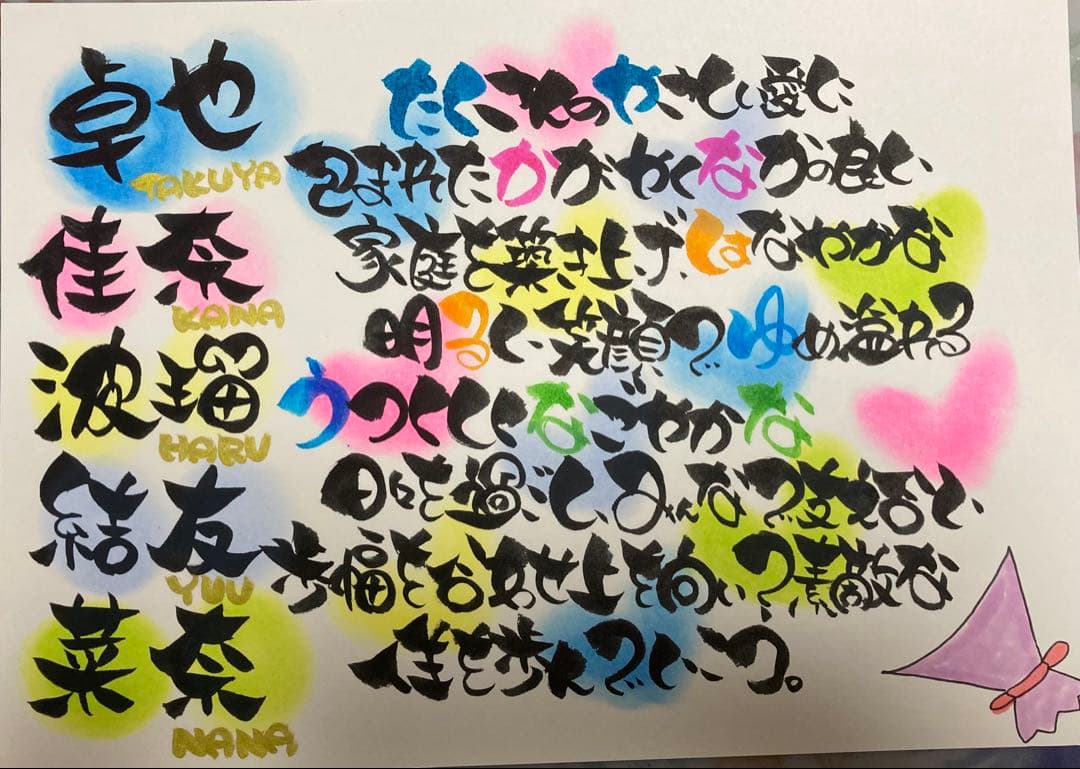 卓也
TAKUYA
佳奈
KANA
波瑠
HARU
結友
YUU
菜奈
NANA
たくさんのやさしい愛に
包まれたかがやくなかの良い
家庭を築き上げ、はなやかな
明るい笑顔でゆめ溢れる
うつくしくなごやかな
日々を過ごし、みんなで支え合い
歩幅を合わせ上を向いて素敵な
人生を歩んでいこう。